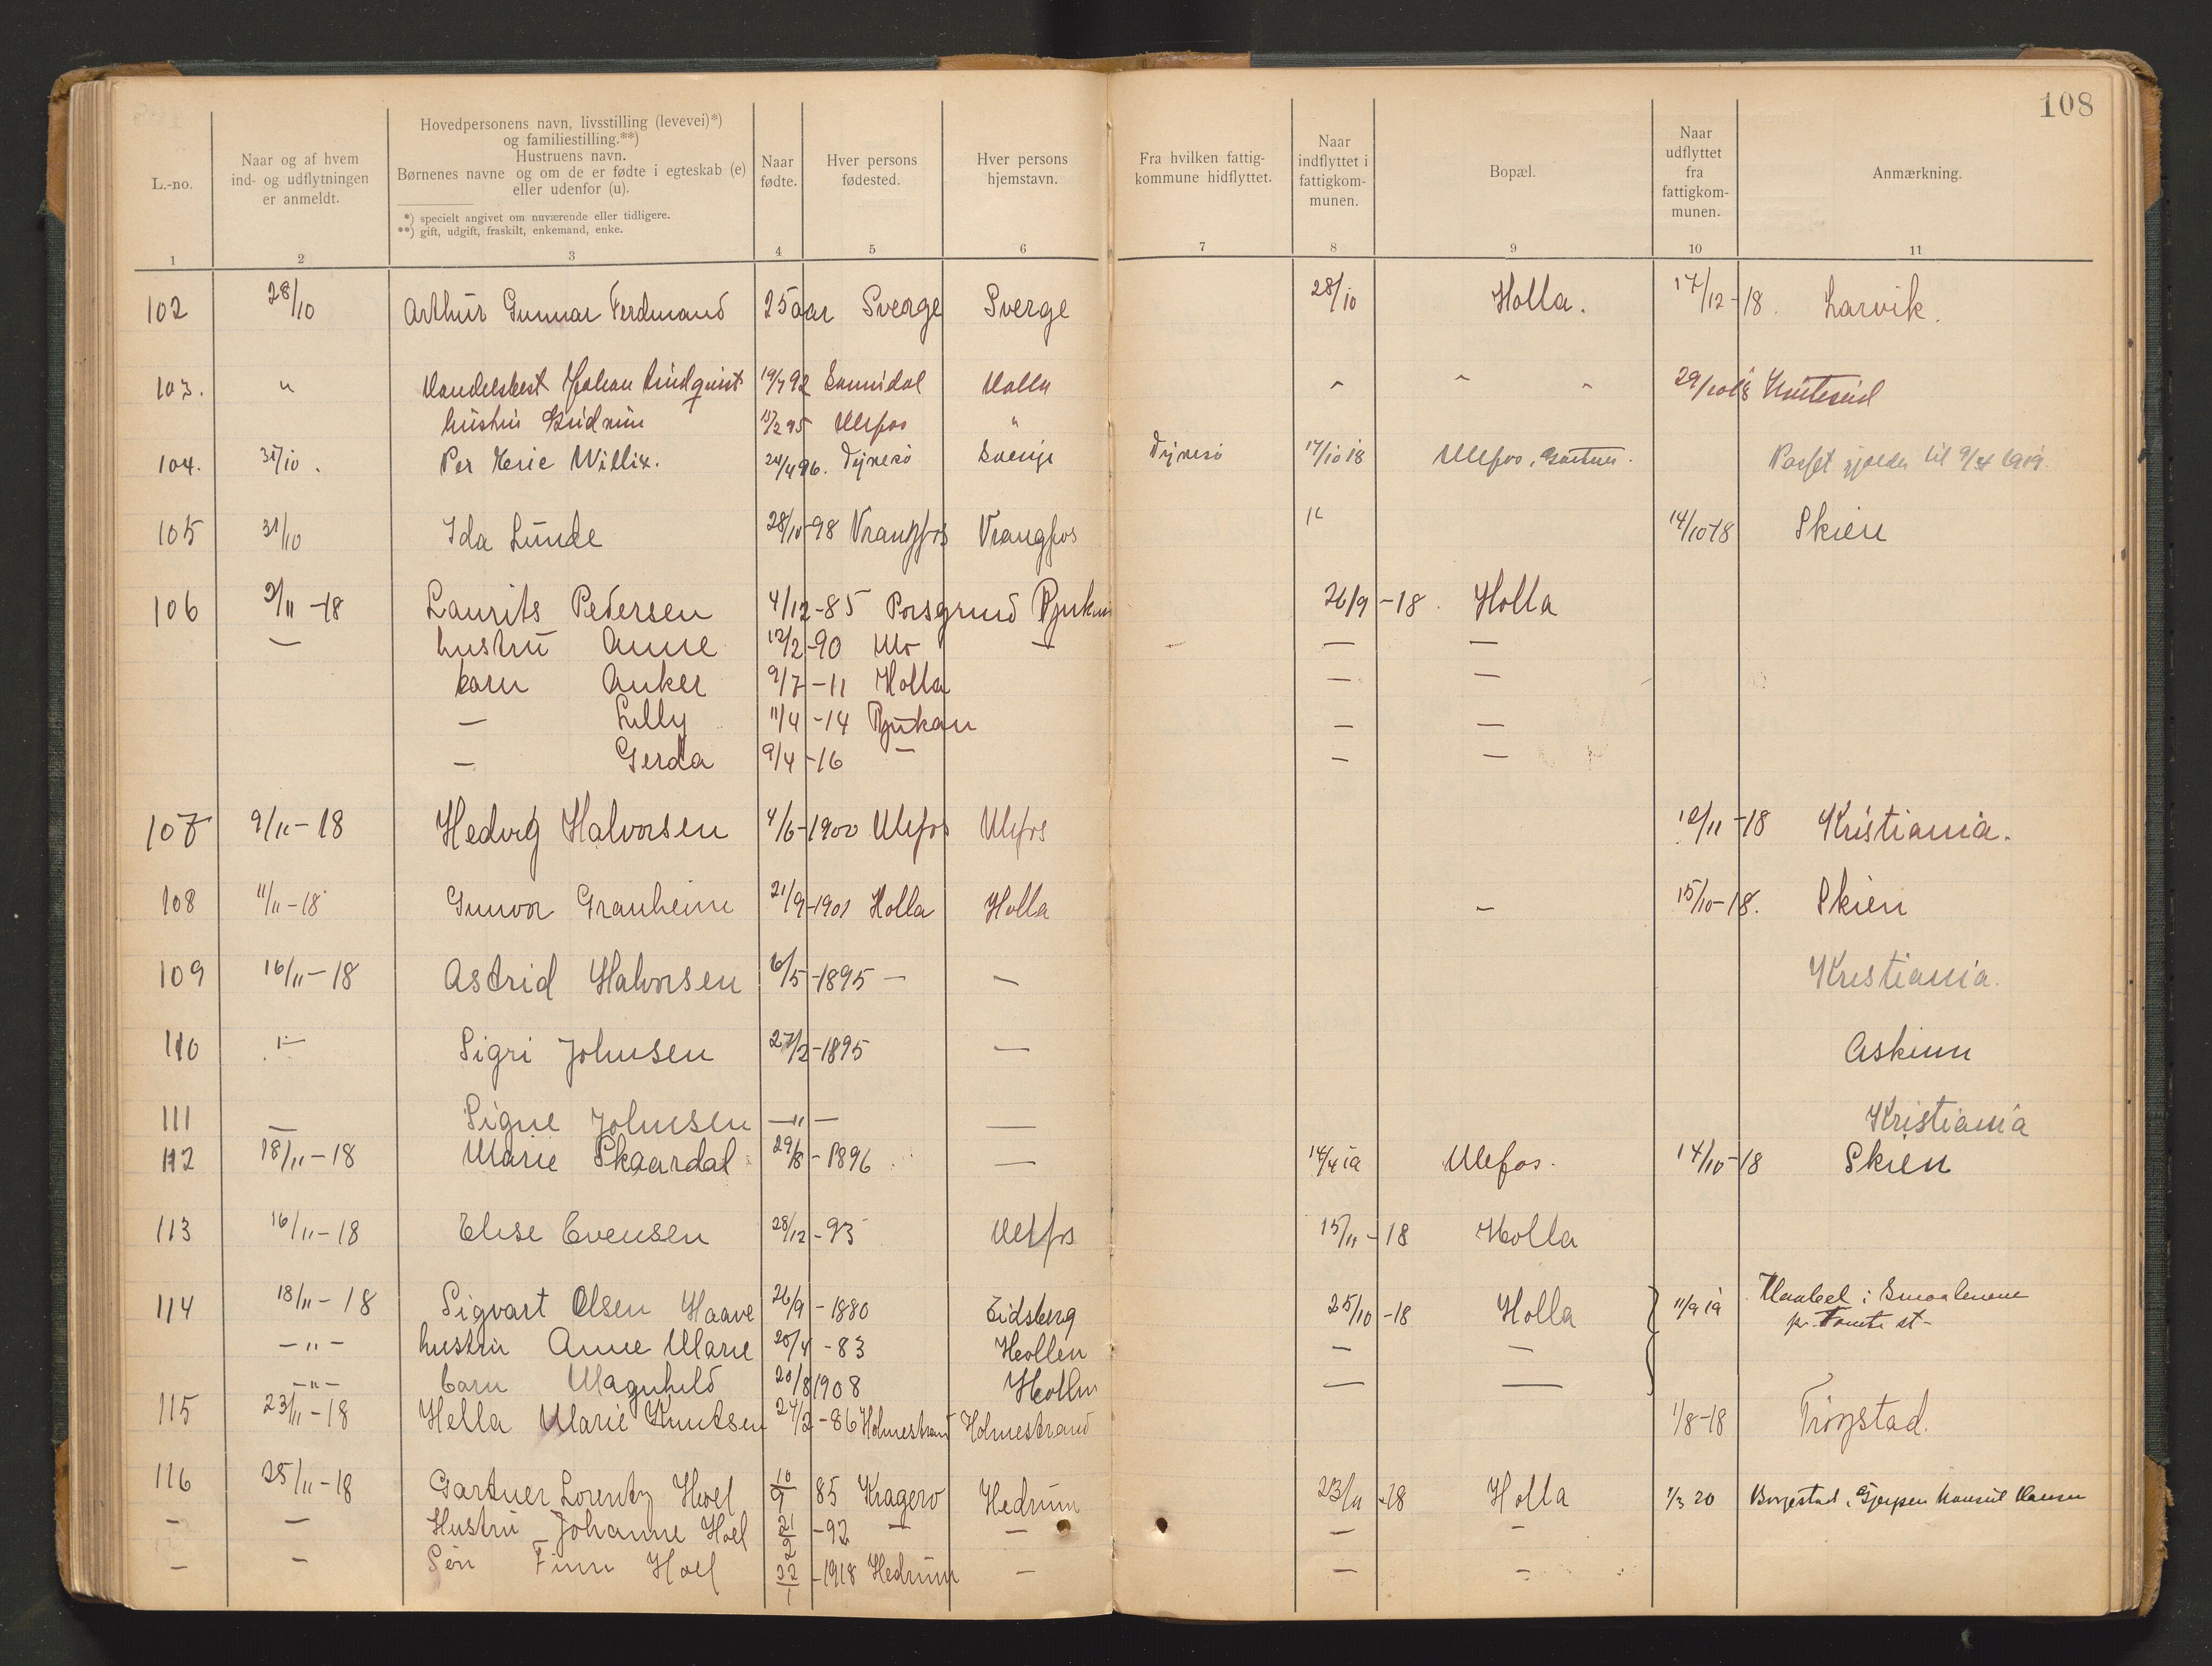 108
L.-no.
Naar og af hvem ind- og udflytningen er anmeldt.
Hovedpersonens navn, livsstilling (levevei)*) og familiestilling.**)
Hustruens navn.
Børnenes navne og om de er fødte i egteskab (e) eller udenfor (u).
*) specielt angivet om nuværende eller tidligere.
**) gift, udgift, fraskilt, enkemand, enke.
Naar fødte.
Hver persons fødested.
Hver persons hjemstavn.
Fra hvilken fattigkommune hidflyttet.
Naar indflyttet i fattigkommunen.
Bopæl.
Naar udflyttet fra fattigkommunen.
Anmærkning.
1 2 3 4 5 6 7 8 9 10 11
102 28/10 Arthur Gunnar Ferdinand 25 aar Sverge Sverge 28/10 Holla. 17/12-18. Larvik.
103. " Handelsbest Johan Lindquist 19/7 92 Sannidal Holla 29/10 18
hustru Gudrun 95 Ulefos "
104. 31/10. Per Eric Willix. 24/4 96. 17/10 18 Ulefos, Passet gjælder til 9/4 1919.
105 31/10 Ida Lunde 28/10-98 Vrangfos Vrangfos " 14/10-18 Skien
106 2/11-18 Laurits Pedersen 4/12-85 Porsgrund Rjukan 26/9-18. Holla
— hustru Anne 12/2-90 Mo — — —
barn Anker 9/7-11 Holla — —
— Lilly 11/4-14 Rjukan — —
— Gerda 9/4-16 — — —
107 9/11-18 Hedvig Halvorsen 4/6-1900 Ulefos Ulefos 12/11-18 Kristiania.
108 11/11-18 Gunvor Granheim 21/9-1901 Holla Holla — 15/10-18. Skien
109 16/11-18 Astrid Halvorsen 6/5-1895 — — Kristiania.
110 — Sigri Johnsen 27/2-1895 — Askim
111 — Signe Johnsen —"— — Kristiania
112 18/11-18 Marie Skaardal 29/8-1896 — 14/4 19 Ulefos. 14/10-18 Skien
113 16/11-18 Elise Evensen 28/12-93 Ulefos 15/11-18 Holla
114 18/11-18 Sigvart Olsen Haave 26/9-1880 Eidsberg 25/10-18 Holla 11/9 19 i Smaalenene
pr. Tomter st-
—"— hustru Anne Marie 20/4-83 Hollen — —
—"— barn Magnhild 20/8 1908 Hollen — —
115 23/11-18 Hella Marie Knutsen 24/2-86 Holmestrand Holmestrand 1/8-18 Trøgstad.
116 25/11-18 Gartner Lorentz Hoel 10/9 85 Kragerø Hedrum 23/11-18 Holla 1/3 20 Borgestad, Gjerpen
— — Hustru Johanne Hoel 21/2-92 — — — —
— — Søn Finn Hoel 22/1-1918 Hedrum — — —